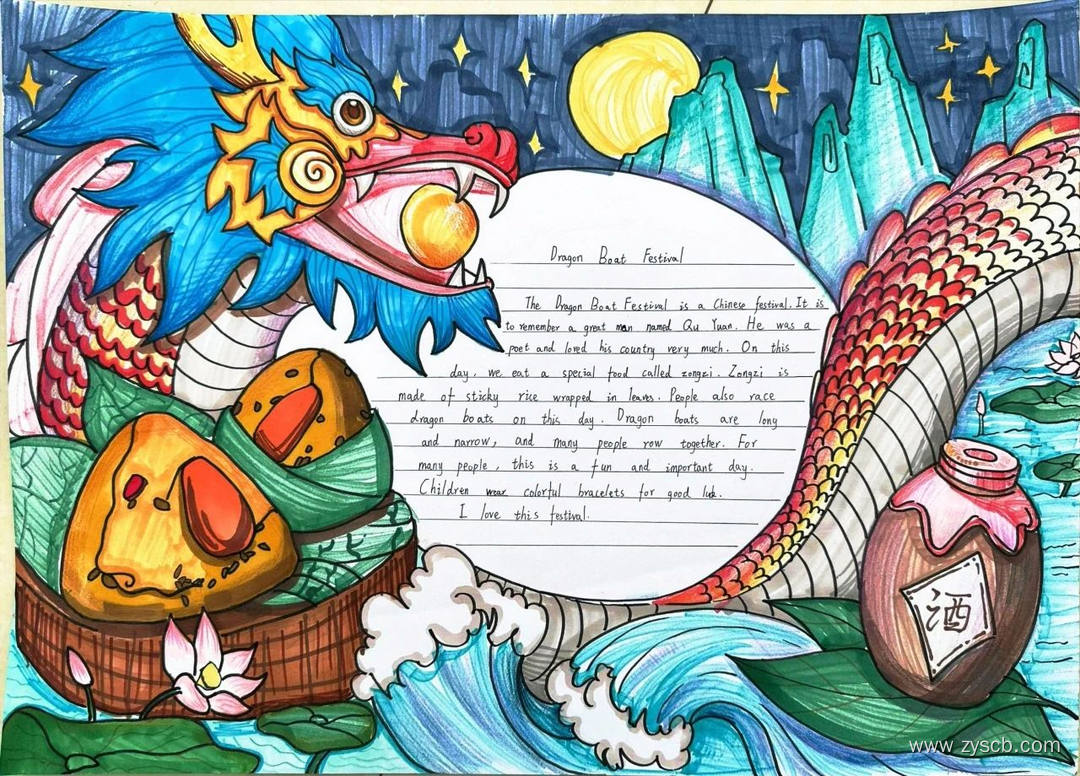 Dragon Boat Festival
The Dragon Boat Festival is a Chinese festival. It is
to remember a great man named Qu Yuan. He was a
poet and loved his country very much. On this
day, we eat a special food called zongzi. Zongzi is
made of sticky rice wrapped in leaves. People also race
dragon boats on this day. Dragon boats are long
and narrow, and many people row together. For
many people, this is a fun and important day.
Children wear colorful bracelets for good luck.
I love this festival.
酒
www.zyscb.com